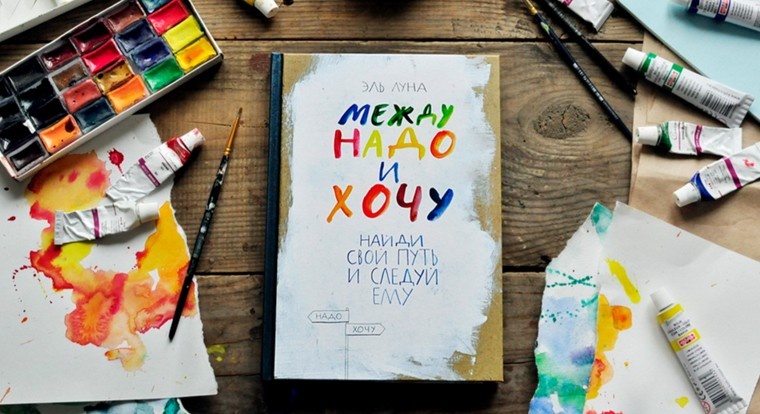 ЭЛЬ ЛУНА
МЕЖДУ
НАДО
И
ХОЧУ
НАЙДИ
СВОЙ ПУТЬ
И СЛЕДУЙ
ЕМУ
НАДО
ХОЧУ